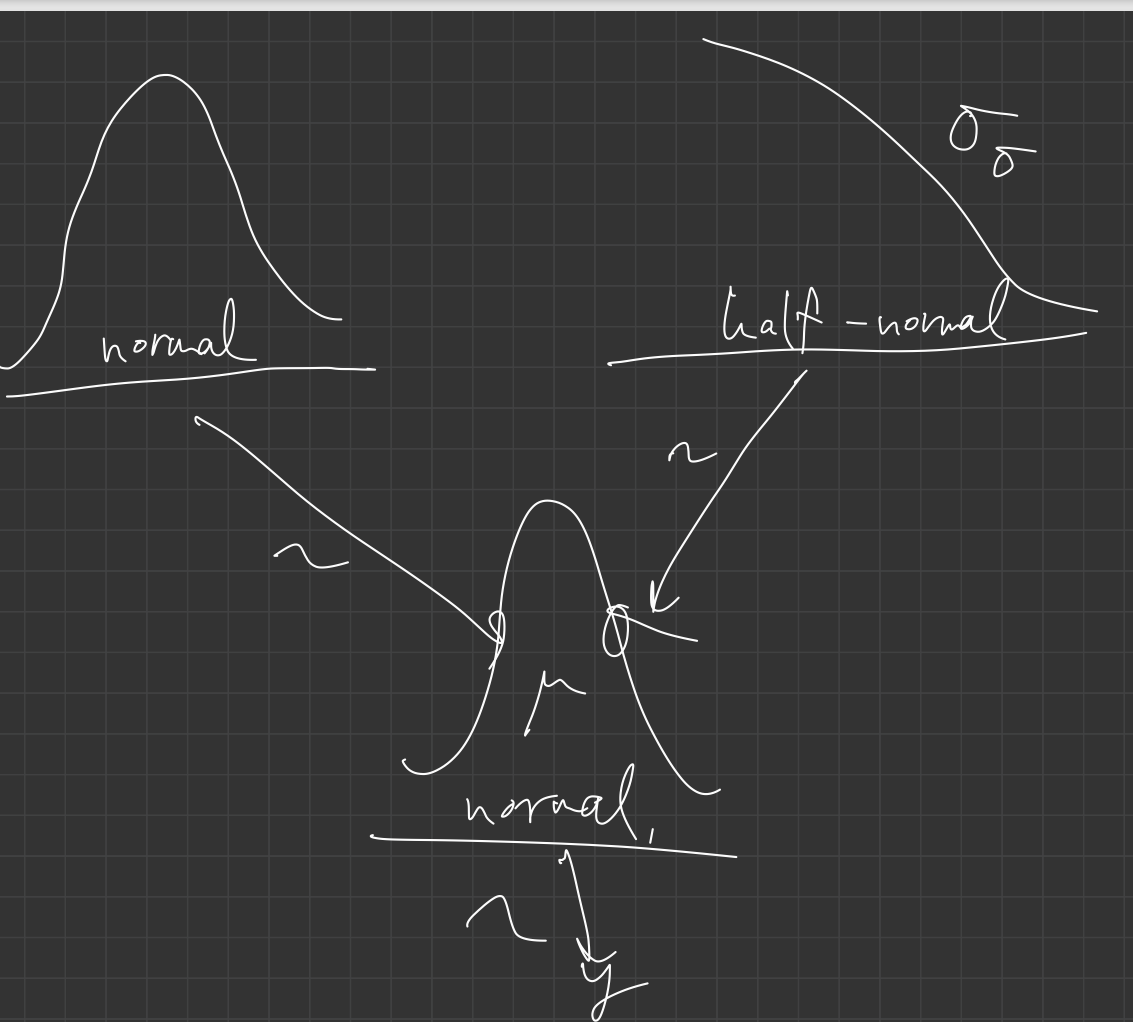 σ_σ
normal
half-normal
~
~
σ
μ
normal,
~
y